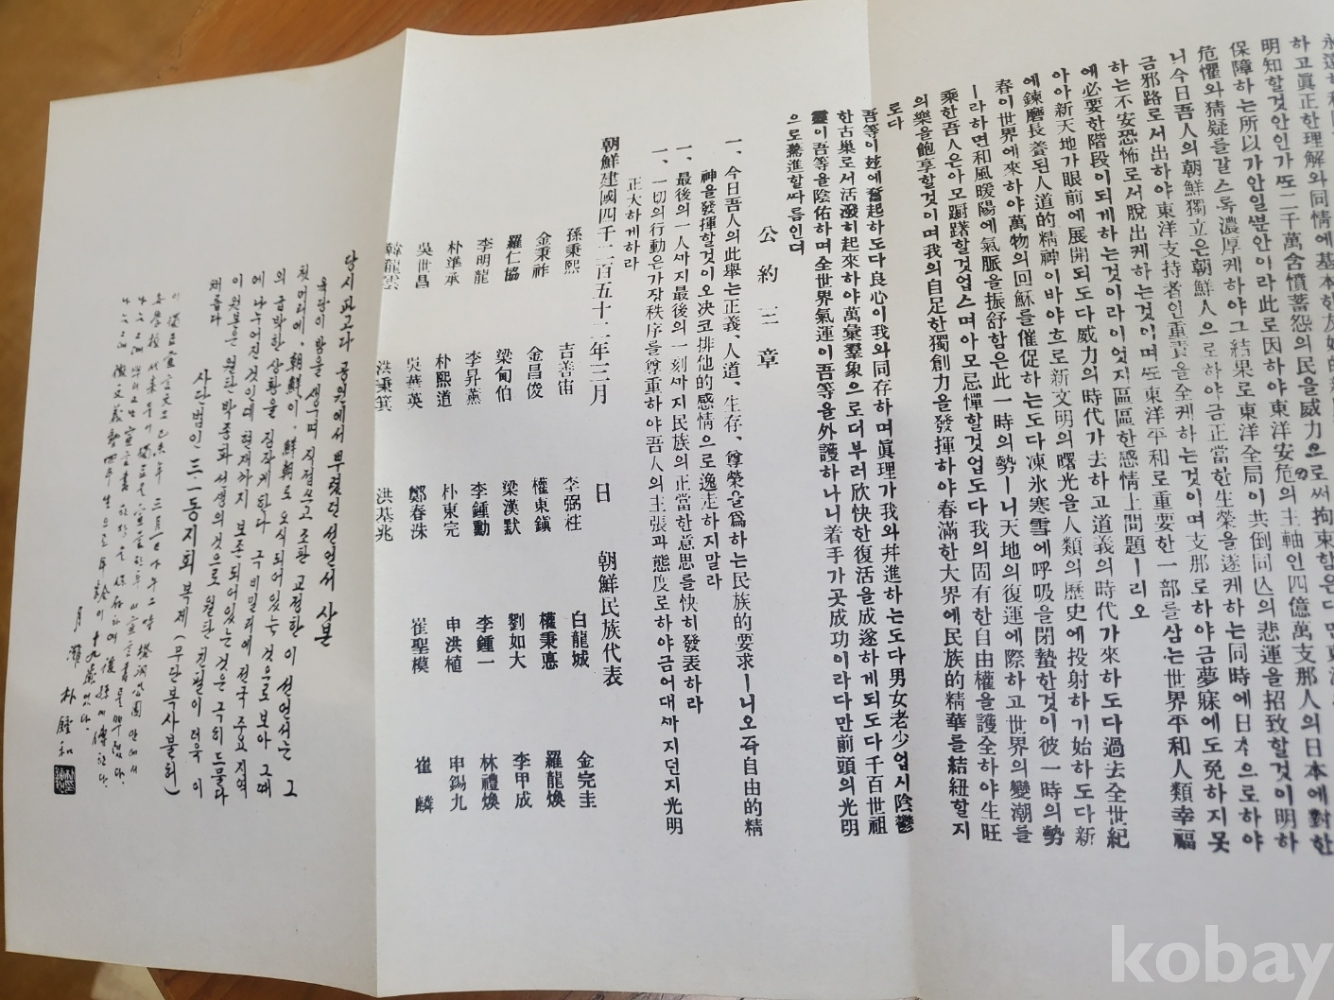 하고眞正한理解와同情에基本한友好的
明知할것안인가또二千萬含憤蓄怨의民을威力으로써拘束함은다만東洋
保障하는所以가안일뿐안이라此로因하야東洋安危의主軸인四億萬支那人의日本에對한
危懼와猜疑를갈스록濃厚케하야그結果로東洋全局이共倒同亡의悲運을招致할것이明하
니今日吾人의朝鮮獨立은朝鮮人으로하야금正當한生榮을遂케하는同時에日本으로하야
금邪路로서出하야東洋支持者인重責을全케하는것이며支那로하야금夢寐에도免하지못
하는不安恐怖로서脫出케하는것이며또東洋平和로重要한一部를삼는世界平和人類幸福
에必要한階段이되게하는것이라이엇지區區한感情上問題ㅣ리오
아아新天地가眼前에展開되도다威力의時代가去하고道義의時代가來하도다過去全世紀
에鍊磨長養된人道的精神이바야흐로新文明의曙光을人類의歷史에投射하기始하도다新
春이世界에來하야萬物의回穌를催促하는도다凍氷寒雪에呼吸을閉蟄한것이彼一時의勢
ㅣ라하면和風暖陽에氣脈을振舒함은此一時의勢ㅣ니天地의復運에際하고世界의變潮를
乘한吾人은아모躕躇할것업스며아모忌憚할것업도다我의固有한自由權을護全하야生旺
의樂을飽享할것이며我의自足한獨創力을發揮하야春滿한大界에民族的精華를結紐할지
로다
吾等이玆에奮起하도다良心이我와同存하며眞理가我와幷進하는도다男女老少업시陰鬱
한古巢로서活潑히起來하야萬彙羣象으로더부러欣快한復活을成遂하게되도다千百世祖
靈이吾等을陰佑하며全世界氣運이吾等을外護하나니着手가곳成功이라다만前頭의光明
으로驀進할따름인뎌
公約三章
一、今日吾人의此擧는正義、人道、生存、尊榮을爲하는民族的要求ㅣ니오즉自由的精
神을發揮할것이오決코排他的感情으로逸走하지말라
一、最後의一人까지最後의一刻까지民族의正當한意思를快히發表하라
一、一切의行動은가장秩序를尊重하야吾人의主張과態度로하야금어대까지던지光明
正大하게하라
朝鮮建國四千二百五十二年三月 日 朝鮮民族代表
孫秉熙 吉善宙 李弼柱 白龍城 金完圭
金秉祚 金昌俊 權東鎭 權秉悳 羅龍煥
羅仁協 梁甸伯 梁漢默 劉如大 李甲成
李明龍 李昇薰 李鍾勳 李鍾一 林禮煥
朴準承 朴熙道 朴東完 申洪植 申錫九
吳世昌 吳華英 鄭春洙 崔聖模 崔麟
韓龍雲 洪秉箕 洪基兆
당시 파고다 공원에서 뿌렸던 선언서 사본
육당이 밤을 새우며 직접쓰고 조판 교정한 이 선언서는 그
첫머리에, 朝鮮이, 鮮朝로 오식되어있는 것으로 보아 그때
의 급박한 상황을 짐작케한다 극비밀리에 전국 주요 지역
에 나누어진것인데 현재까지 보존되어있는 것은 극히 드물다
이 원본은 월탄 박종화 선생의 것으로 월탄 친필이 더욱 이
채롭다
사단법인 三·一동지회 복제 (무단복사불허)
이 獨立宣言文은 己未年 三月一日 下午二時 塔洞公園 안에서
月灘 朴鍾和
kobay